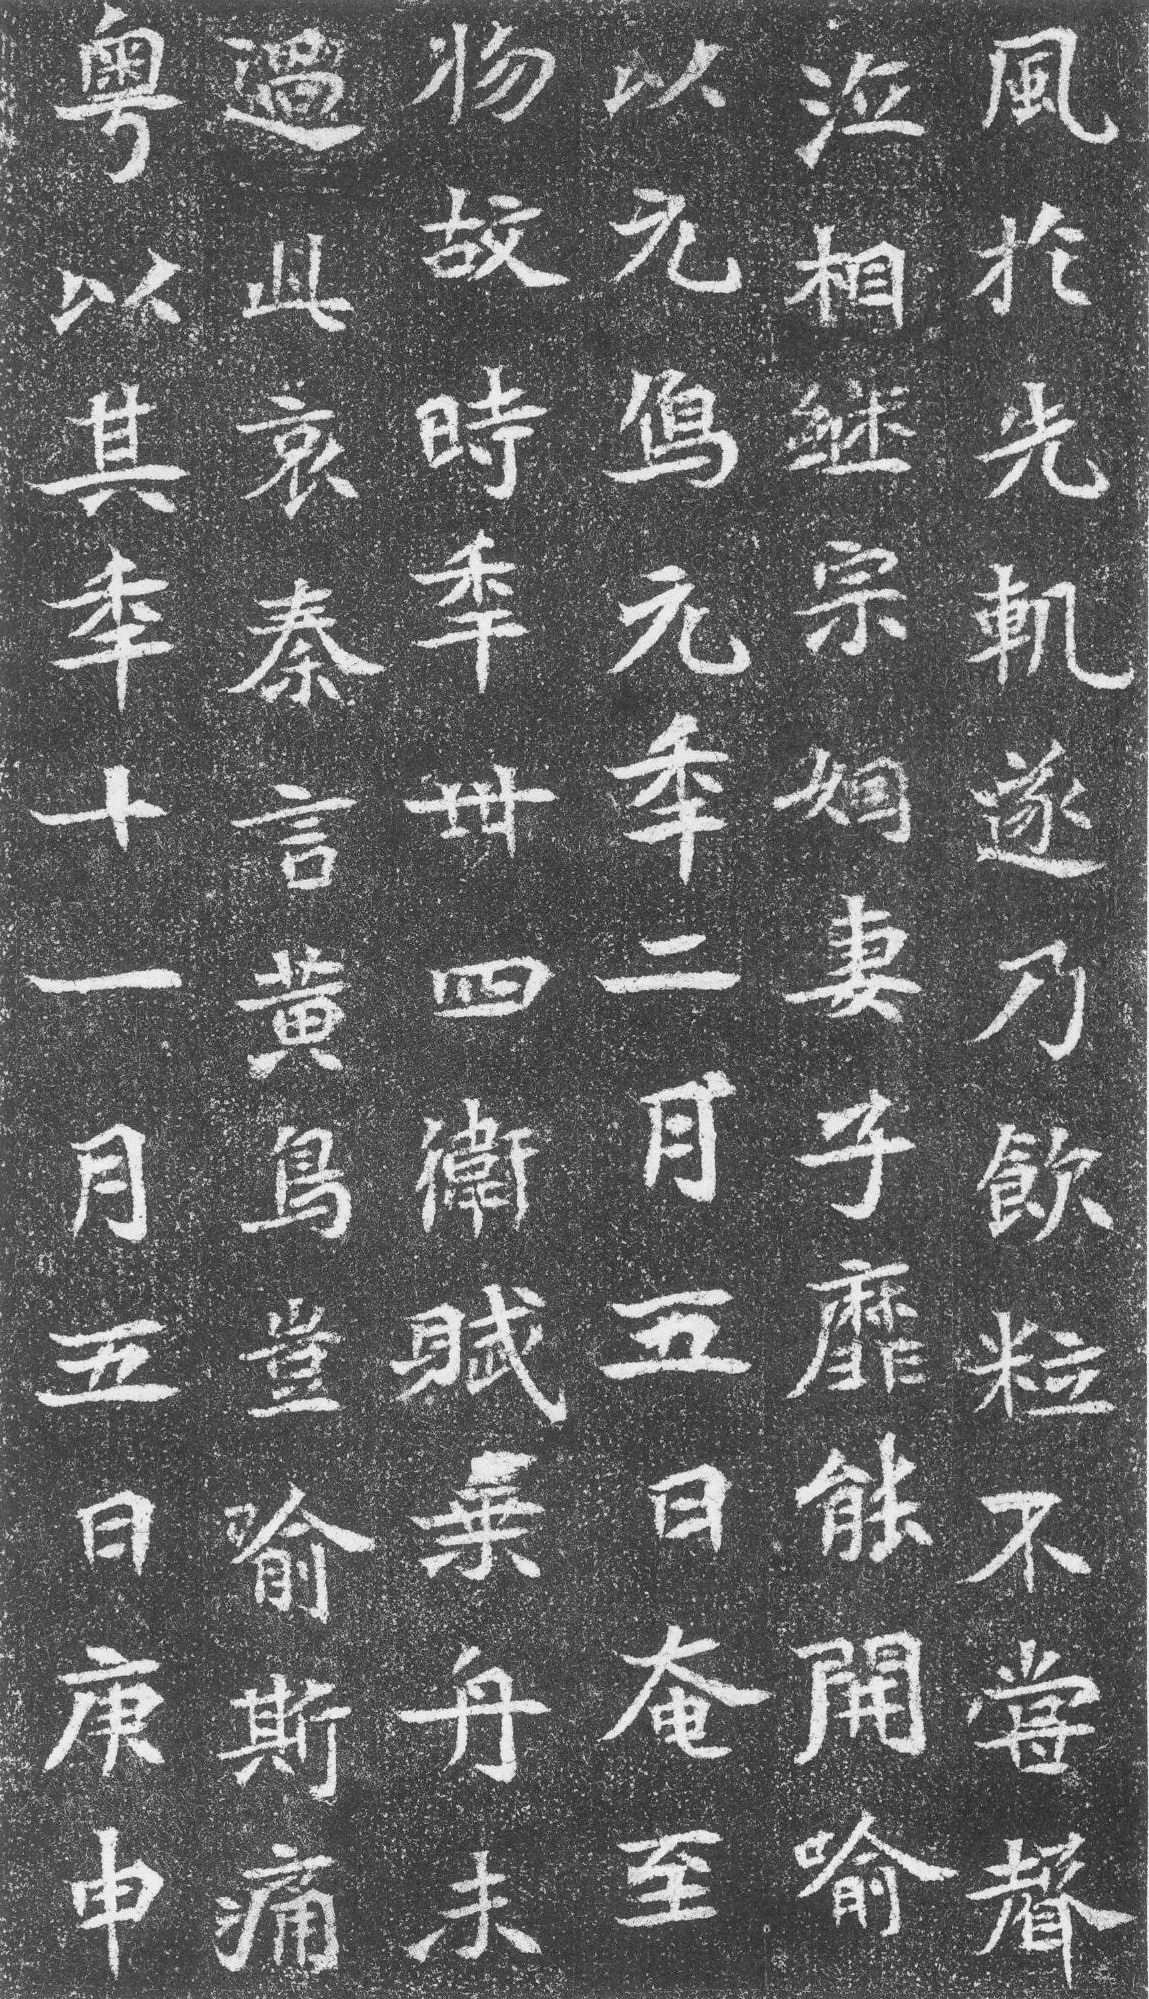 風於先軌遂乃飲粒不嘗聲
泣相継宗姻妻子靡能開喻
以元凫元秊二月五日奄至
物故時秊卌四衛賦乗舟未
過此哀秦言黄鳥豈喻斯痛
粤以其秊十一月五日庚申